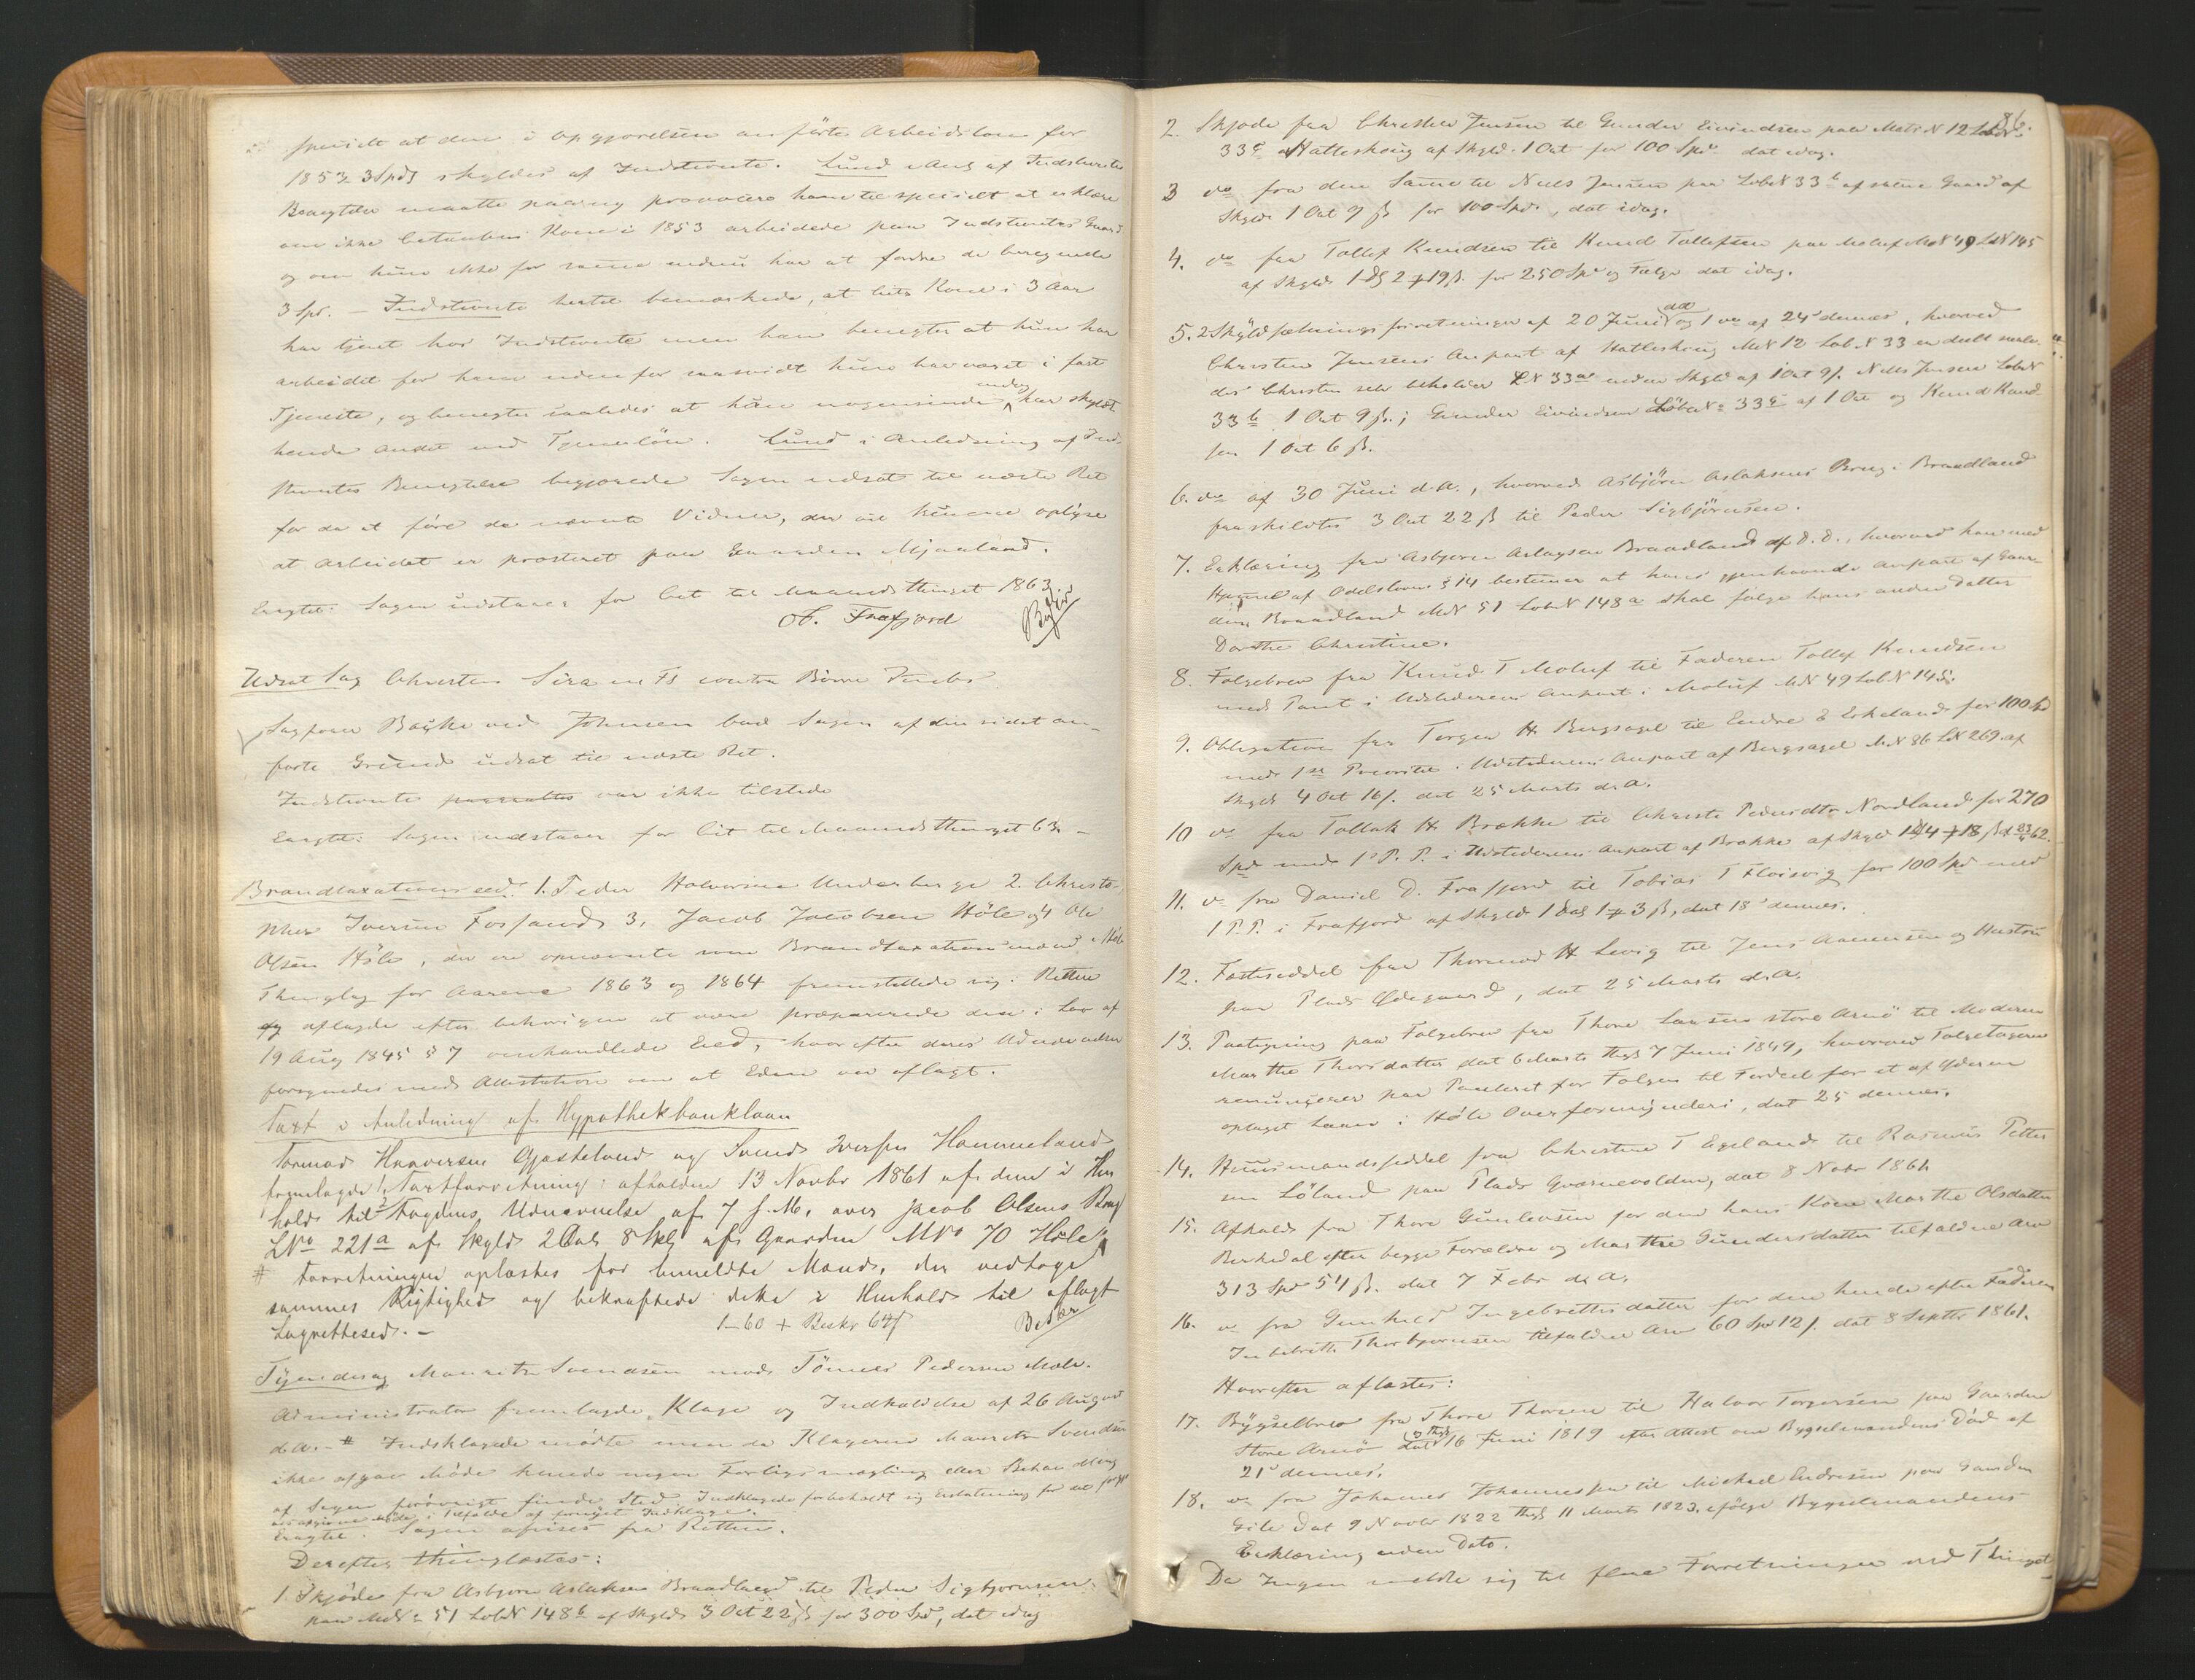 specielt at den i Opgjørelsen anførte Arbeidsløn for
1853 3 Spd skyldes af Indstevnte. Lund i Anl. af Indstevntes
Benegtelse maatte paany provocere ham til specielt at erklære
om ikke Citantens Kone i 1853 arbeidede paa Indstevntes Gaard
og om hun ikke for samme endnu har at fordre de beregnede
3 Spd. – Indstevnte hertil bemærkede, at Cits Kone i 3 Aar
har tjent hos Indstevnte men han benegter at hun har
arbeidet for ham udenfor saavidt hun har været i fast
Tjeneste, og benegter saaledes at han nogensinde har skyldt
hende andet end Tjenerløn. Lund i Anledning af Ind-
stevntes Benegtelse begjærede Sagen udsat til næste Ret
for da at føre de nævnte Vidner, der vil kunne oplyse
at Arbeidet er præsteret paa Gaarden Mjaaland.
Eragtet: Sagen udstaaer for Cit til Maanedsthinget 1863
Ol. Frafjord
Udsat Sag Christen Sira contra Børre
Sagfører Bache ved Johnsen bad Sagen af den sidst an-
førte Grund udsat til næste Ret.
Indstevnte var ikke tilstede
Eragtet: Sagen udstaaer for Cit til Maanedsthinget 63 –
Brandtaxationseed. 1. Peder Halvorsen Underberge 2. Christo-
pher Iversen Fossand 3. Jacob Jacobsen Höle og 4 Ole
Olsen Höle, der ere opnævnte som Brandtaxationsmænd i Höle
Thinglag for Aarene 1863 og 1864 fremstillede sig i Retten
og aflagde efter behørigen at være præparerede den i Lov af
19 Aug 1845 § 7 omhandlede Eed, hvorefter deres Udnævnelser
forsynedes med Attestation om at Eden var aflagt.
Taxt i Anledning af Hypothekbanklaan
Tormod Gjæsteland og Svend Iversen Hommeland
fremlagde Taxtforretning afholden 13 Novbr 1861 af dem i Hen
hold til Fogdens Udnævnelse af 7 s. M. over Jacob Olsens Brug
LNo 221a af Skyld 2 Ort 8 Skl af Gaarden MNo 70 Höle
# Forretningen oplæstes for bemeldte Mænd, der vedtoge
sammes Rigtighed og bekræftede dette i Henhold til aflagt
Lagrettesed. –
1-60 + Beskr 64
Tyendesag Mauritz Svendsen mod Tönnes Pedersen Mæle.
Administrator fremlagde Klage og Indkaldelse af 26 August
d.A. – # Indklagede mødte men da Klageren Mauritz Svendsen
ikke afgav Møde kunde ingen Forligsmægling eller Behandling
af Sagen forøvrigt finde Sted. Indklagede forbeholdt sig Erstatning for det
Møde i Tilfælde af fornyet Indklage.
Eragtet: Sagen afvises fra Retten.
Derefter thinglæstes:
1. Skjøde fra Asbjørn Aslaksen Braadland til Peder Sigbjørnsen
paa MNo 51 LobN 148b af Skyld 3 Ort 22 ß for 300 Spd, dat idag
86.
2. Skjøde fra Christen Jensen til Gunder Eivindsen paa Matr N 12 LobN
33c Hatleskoug af Skyld. 1 Ort for 100 Spd. dat idag.
3 do fra den Samme til Niels Jensen paa LobN 33b af samme Gaard af
Skyld 1 Ort 9 ß for 100 Spd., dat idag.
4. do fra Tollef Knudsen til Knud Tollefsen paa Moluf MN 49 LN 145
af Skyld 1 Dlr 2 ₣ 19 ß. for 250 Spd og Følge dat idag.
5. 2 Skyldsætningsforretninger af 20 Juni og 1 do af 24 dennes, hvorved
Christen Jensens Anpart af Hatleskoug MN 12 Lob N 33 er deelt saale-
des Christen selv beholder LN 33a under Skyld af 1 Ort 9 ß. Niels Jensen LobN
33b 1 Ort 9 ß.; Gunder Eivindsen LobN 33c af 1 Ort og Knud Knud-
sen 1 Ort 6 ß.
6. do af 30 Juni d.A., hvorved Asbjörn Aslaksens Brug i Braadland
fraskildtes 3 Ort 22 ß til Peder Sigbjörnsen.
7. Erklæring fra Asbjørn Aslagsen Braadland af d.d., hvorved han med
Hjemmel af Odelsloven § 14 bestemmer at hans gjenhavende Anpart af Gaar-
den Braadland MN 51 LobN 148a skal følge hans anden Datter
Dorthe Christine.
8. Følgebrev fra Knud T Moluf til Faderen Tollef Knudsen
med Pant i Udstederens Anpart i Moluf MN 49 LobN 145.
9. Obligation fra Torger H Bergsagel til Endre E Erkeland for 100 Spd
med 1ste Prioritet i Udstederens Anpart af Bergsagel MN 86 LN 269 af
Skyld 4 Ort 16 ß. dat 25 Marts d.A.
10 do fra Tollak H Brække til Christi Pedersdtr Nordland for 270
Spd med 1 P.P. i Udstederens Anpart af Brække af Skyld 1 4 ₣ 18 ß 62.
11. do fra Daniel D. Frafjord til Tobias T Floisvig for 100 Spd med
1 P.P. i Frafjord af Skyld 1 Dal 1 ₣ 3 ß, dat 18 dennes.
12. Fæsteseddel fra Thormod H Levig til Jens Aanensen og Hustru
paa Plads Ødegaard, dat 25 Marts d.A.
13. Paategning paa Følgebrev fra Thore Larsen store Arnö til Moderen
Marthe Thorsdatter dat 6 Marts thgl 7 Juni 1849, hvorved Følgetageren
renuncerer paa Panteret for Følgen til Fordeel for et af Yderen
optaget Laan i Höle Overformynderi, dat 25 dennes.
14. Huusmandsseddel fra Christine T Egeland til Rasmus Petter
sen Löland paa Plads Qværnevolden, dat 8 Novbr 1861.
15. Afkald fra Thore Gunlevsen for den hans Kone Marthe Olsdatter
Birkedal efter begge Forældre og Marthe Gundersdatter tilfaldne Arv
313 Spd 54 ß. dat 7 Febr d.A.
16. do fra Gunhild Ingebretsdatter for den hende efter Faderen
Ingebrett Thorbjørnsen tilfaldne Arv 60 Spd 12 ß. dat 8 Septbr 1861.
Hvorefter aflæstes:
17. Bygselbrev fra Thore Thorsen til Halvor Torgersen paa Gaarden
Store Arnö dat og thgl 16 Juni 1819 efter Attest om Bygselmandens Död af
21 dennes.
18. do fra Johannes Johannessen til Mickael Endresen paa Gaarden
Gile Dat 9 Novbr 1822 thgl 11 Marts 1823. ifølge Bygselmandens
Erklæring uden Dato.
Da Ingen meldte sig til flere Forretninger ved Thinget